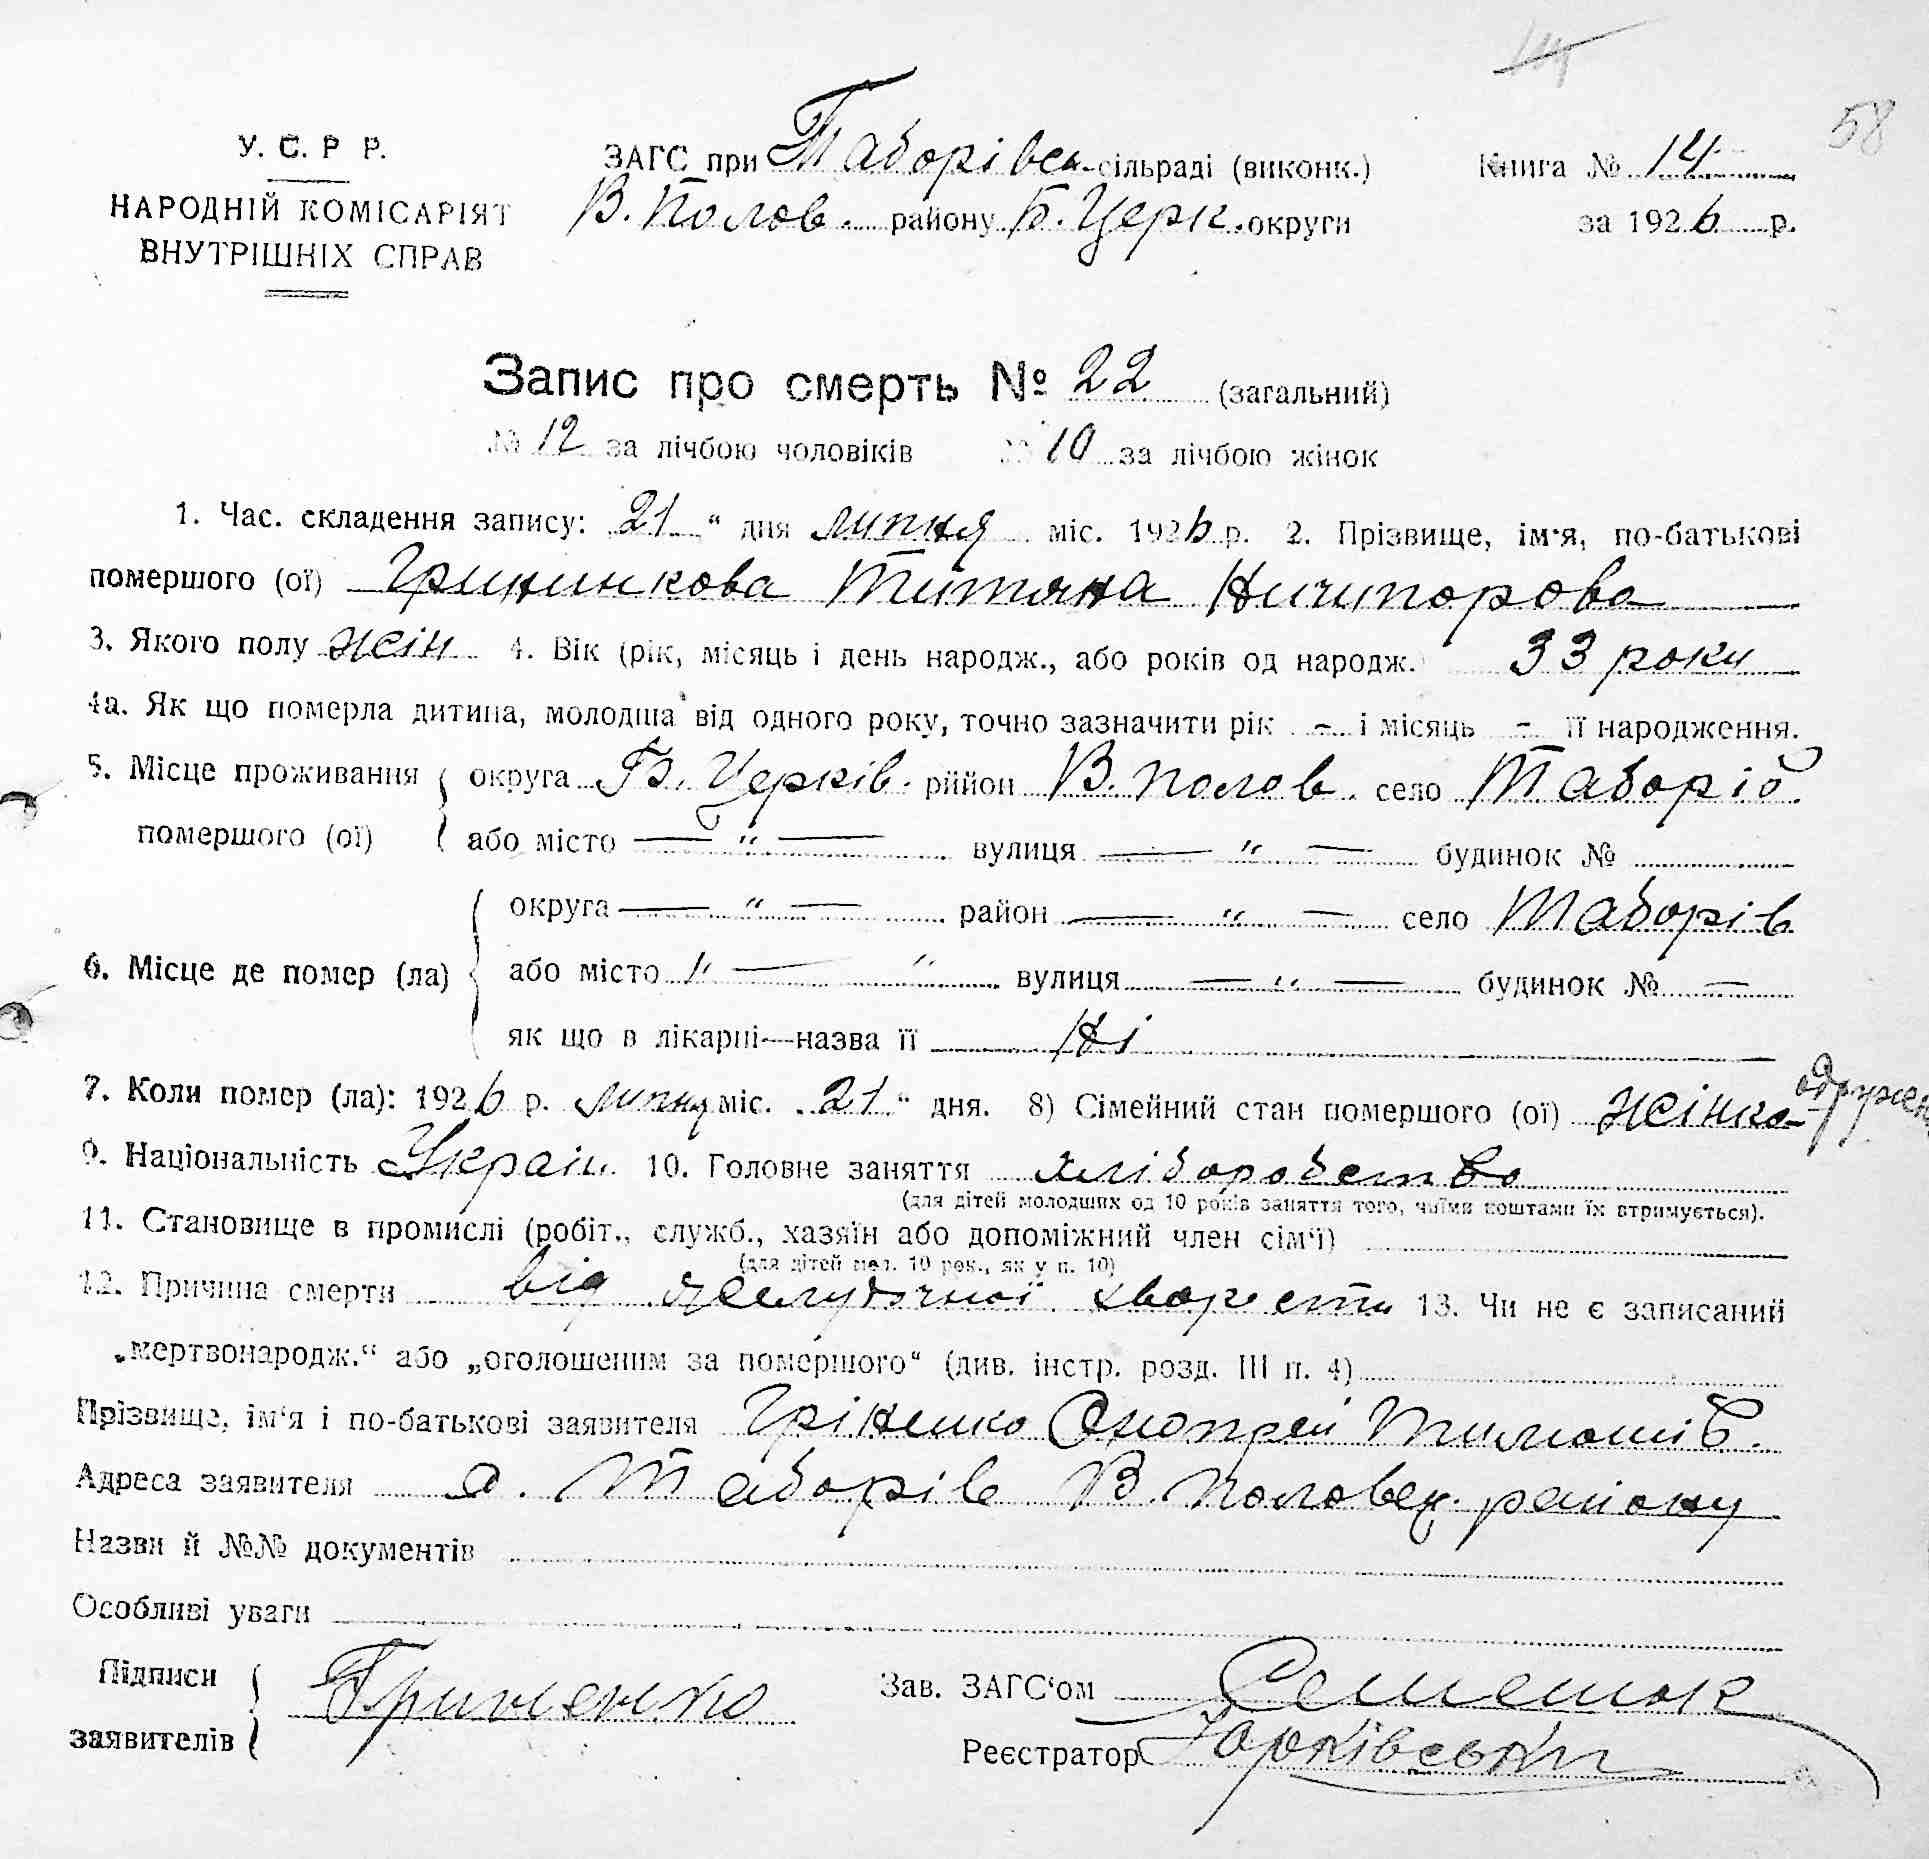 14
58
У. С. Р Р.
НАРОДНІЙ КОМІСАРІЯТ
ВНУТРІШНІХ СПРАВ
ЗАГС при Таборівск. сільраді (виконк.)
В. Полов. району Б. Церк. округи
Книга № 14
за 1926 р.
Запис про смерть № 22 (загальний)
№ 12 за лічбою чоловіків № 10 за лічбою жінок
1. Час. складення запису: 21 " дня липня міс. 1926 р. 2. Прізвище, ім'я, по-батькові
помершого (ої) Гриненкова Титяна Ничипорова
3. Якого полу жін 4. Вік (рік, місяць і день народж., або років од народж.) 33 роки
4а. Як що померла дитина, молодша від одного року, точно зазначити рік – і місяць – її народження.
5. Місце проживання помершого (ої) округа Б. Церків. район В. Полов. село Таборів
або місто — " — вулиця — " — будинок №
6. Місце де помер (ла) округа — " — район — " — село Таборів
або місто " — " вулиця — " — будинок № —
як що в лікарні—назва її Ні
7. Коли помер (ла): 1926 р. липня міс. 21 " дня. 8) Сімейний стан помершого (ої) жінка одружен
9. Національність Україн. 10. Головне заняття хліборобство
(для дітей молодших од 10 років заняття того, чиїми коштами їх втримується).
11. Становище в промислі (робіт., служб., хазяїн або допоміжний член сім'ї)
(для дітей мол. 10 рок., як у п. 10)
12. Причина смерти від желудочної хворости 13. Чи не є записаний
„мертвонародж." або „оголошеним за помершого" (див. інстр. розд. III п. 4)
Прізвище, ім'я і по-батькові заявителя Гріненко Онопрей Тимошів.
Адреса заявителя с. Таборів В. Половец. району
Назви й №№ документів
Особливі уваги
Підписи заявителів Гриненко
Зав. ЗАГС'ом Семенюк
Реєстратор